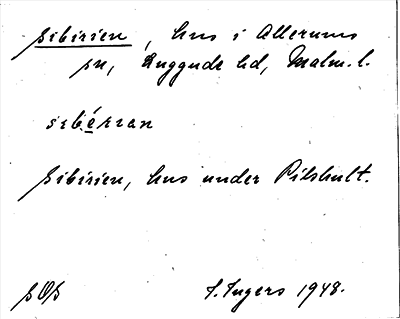 Sibirien, hus i Allerums
sn, Luggude hd, Malm. l.
sibérran
Sibirien, hus under Pilshult.
SOS
I. Ingers 1948.